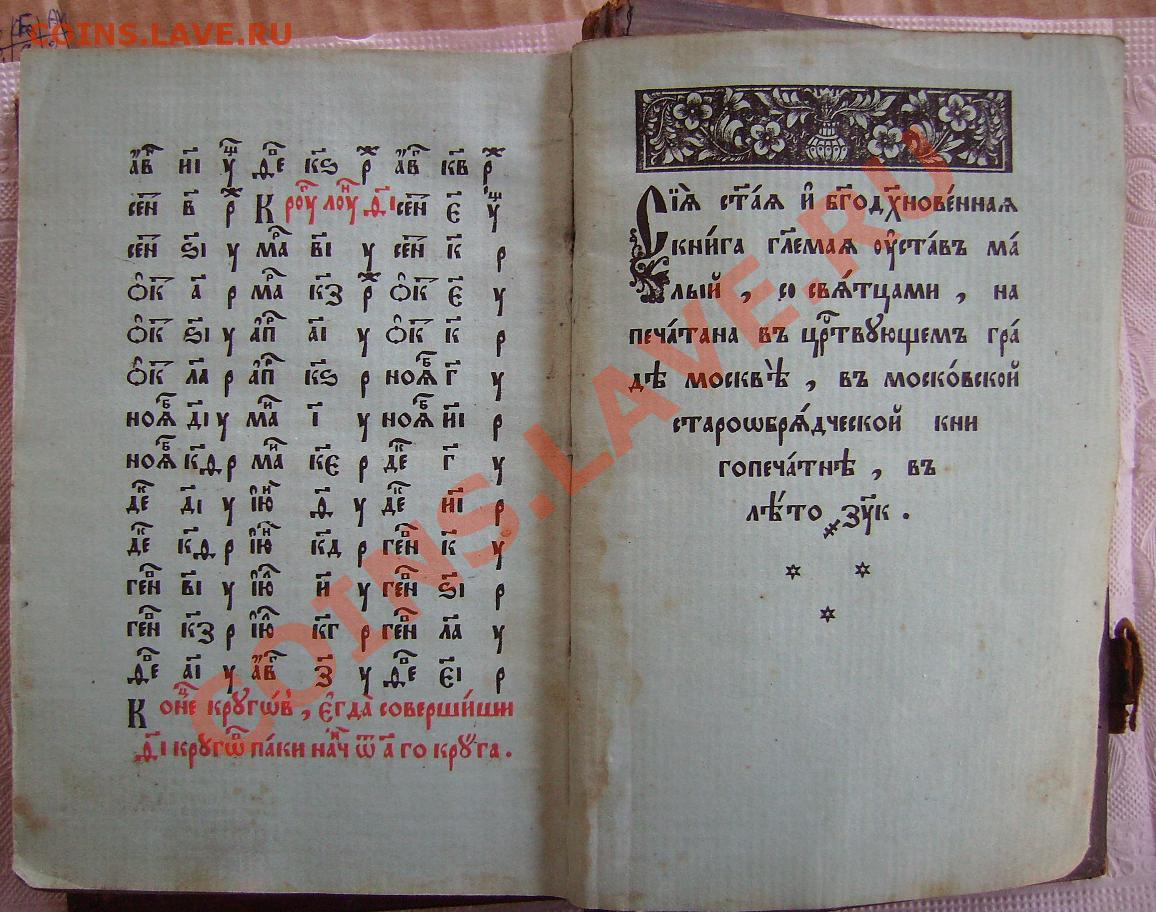 COINS.LAVE.RU
а҆́в і҃и у ѕ҃ к҃ѕ р а҆́в к҃в р
сен в҃ р К роу лоу ѳ҃і сен є҃ у
сен ѕ҃і у ма в҃і у сен к҃ р
ѻ҆к а҃ р ма к҃з р ѻ҆к є҃ у
ѻ҆к ѕ҃і у а҆п а҃і у ѻ҆к к҃ р
ѻ҆к л҃а р а҆п к҃ѕ р ноѧ г҃ у
ноѧ д҃і у ма і҃ у ноѧ и҃і р
ноѧ к҃ѳ р ма к҃є р де г҃ у
де д҃і у і҆ю ѳ҃ у де и҃і р
де к҃ѳ р і҆ю к҃д р ген к҃ у
ген в҃і у і҆ю и҃ у ген ѕ҃і р
ген к҃з р і҆ю к҃г р ген л҃а у
фе а҃і у а҆́в з҃ у фе є҃і р
Коне круго́въ, є҆гда̀ соверши́ши
ѳ҃і круго па́ки на́ч ѿ а҃ го кру́га.
Сїѧ̀ ст҃а́ѧ и҆ бг҃одх҃нове́ннаѧ
кни́га гл҃емаѧ оу҆ста́въ ма
лый, со свѧ́тцами, на
печа́тана въ црⷭ҇твующемъ гра
дѣ москвѣ̀, въ моско́вской
старошбрѧ́дческой кни
гопеча́тнѣ, въ
лѣ́то ҂зу҃к.
COINS.LAVE.RU